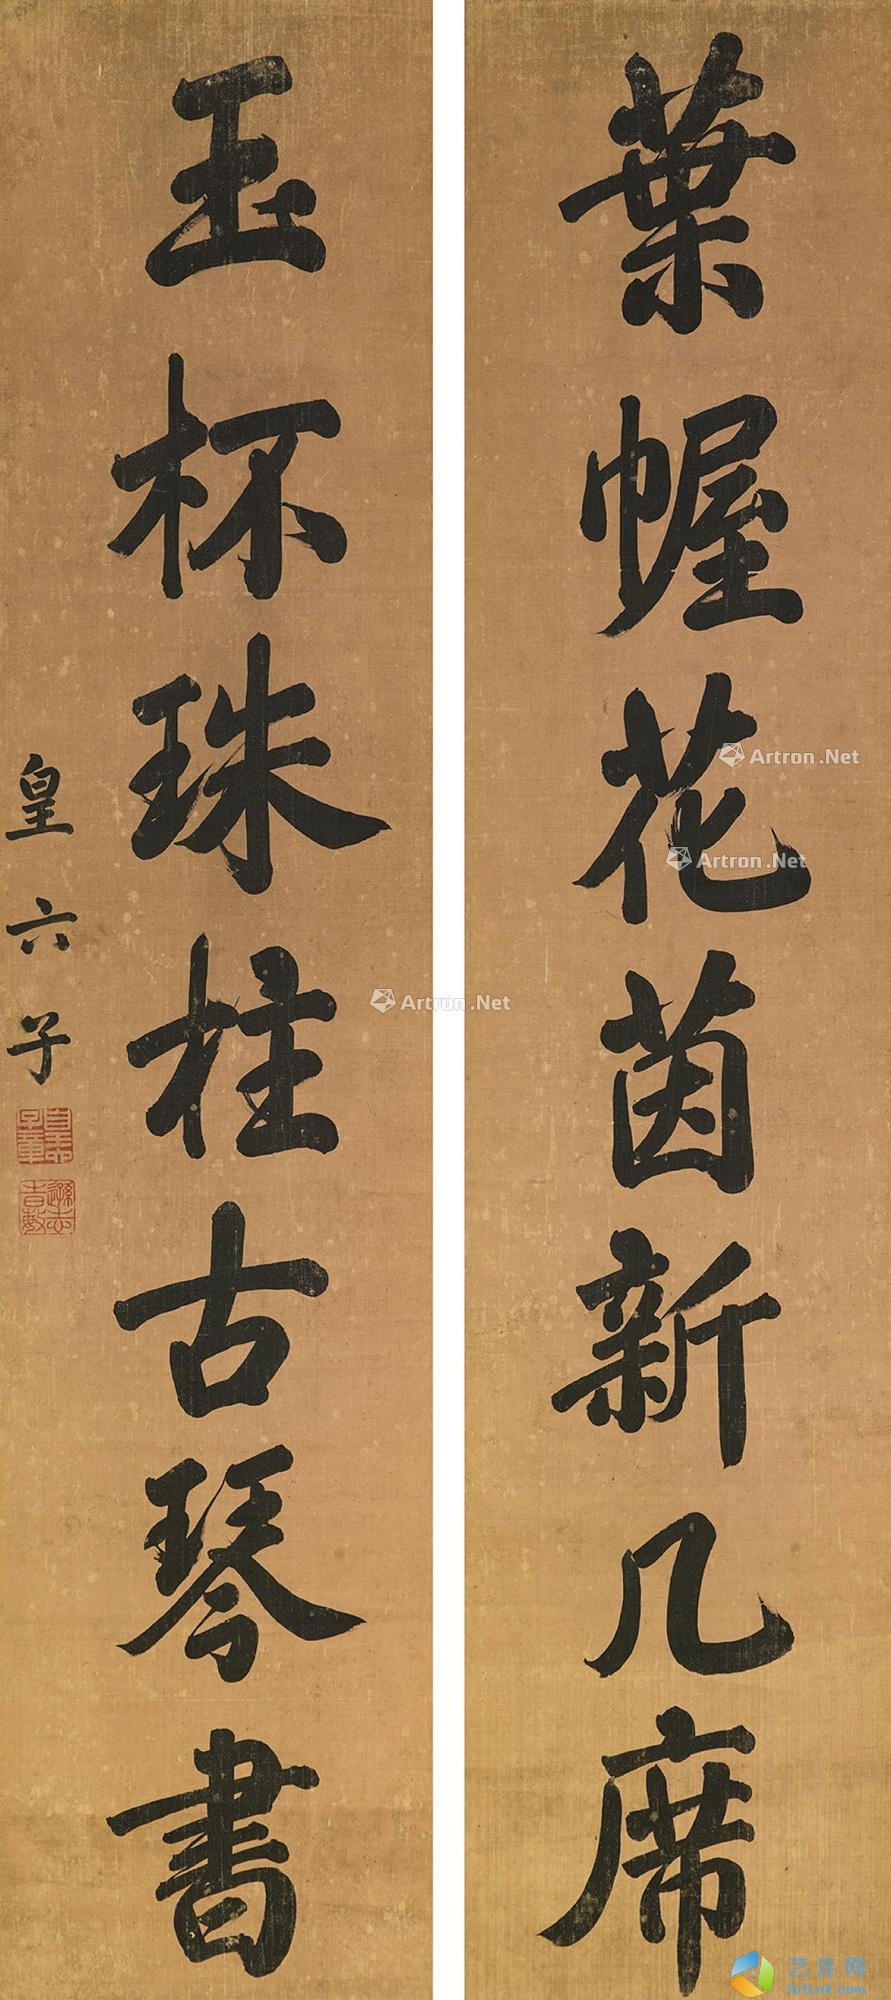 葉幄花茵新几席
玉杯珠柱古琴書
皇六子
Artron.Net
Artron.Net
Artron.Net
艺连网
ArtLink.com